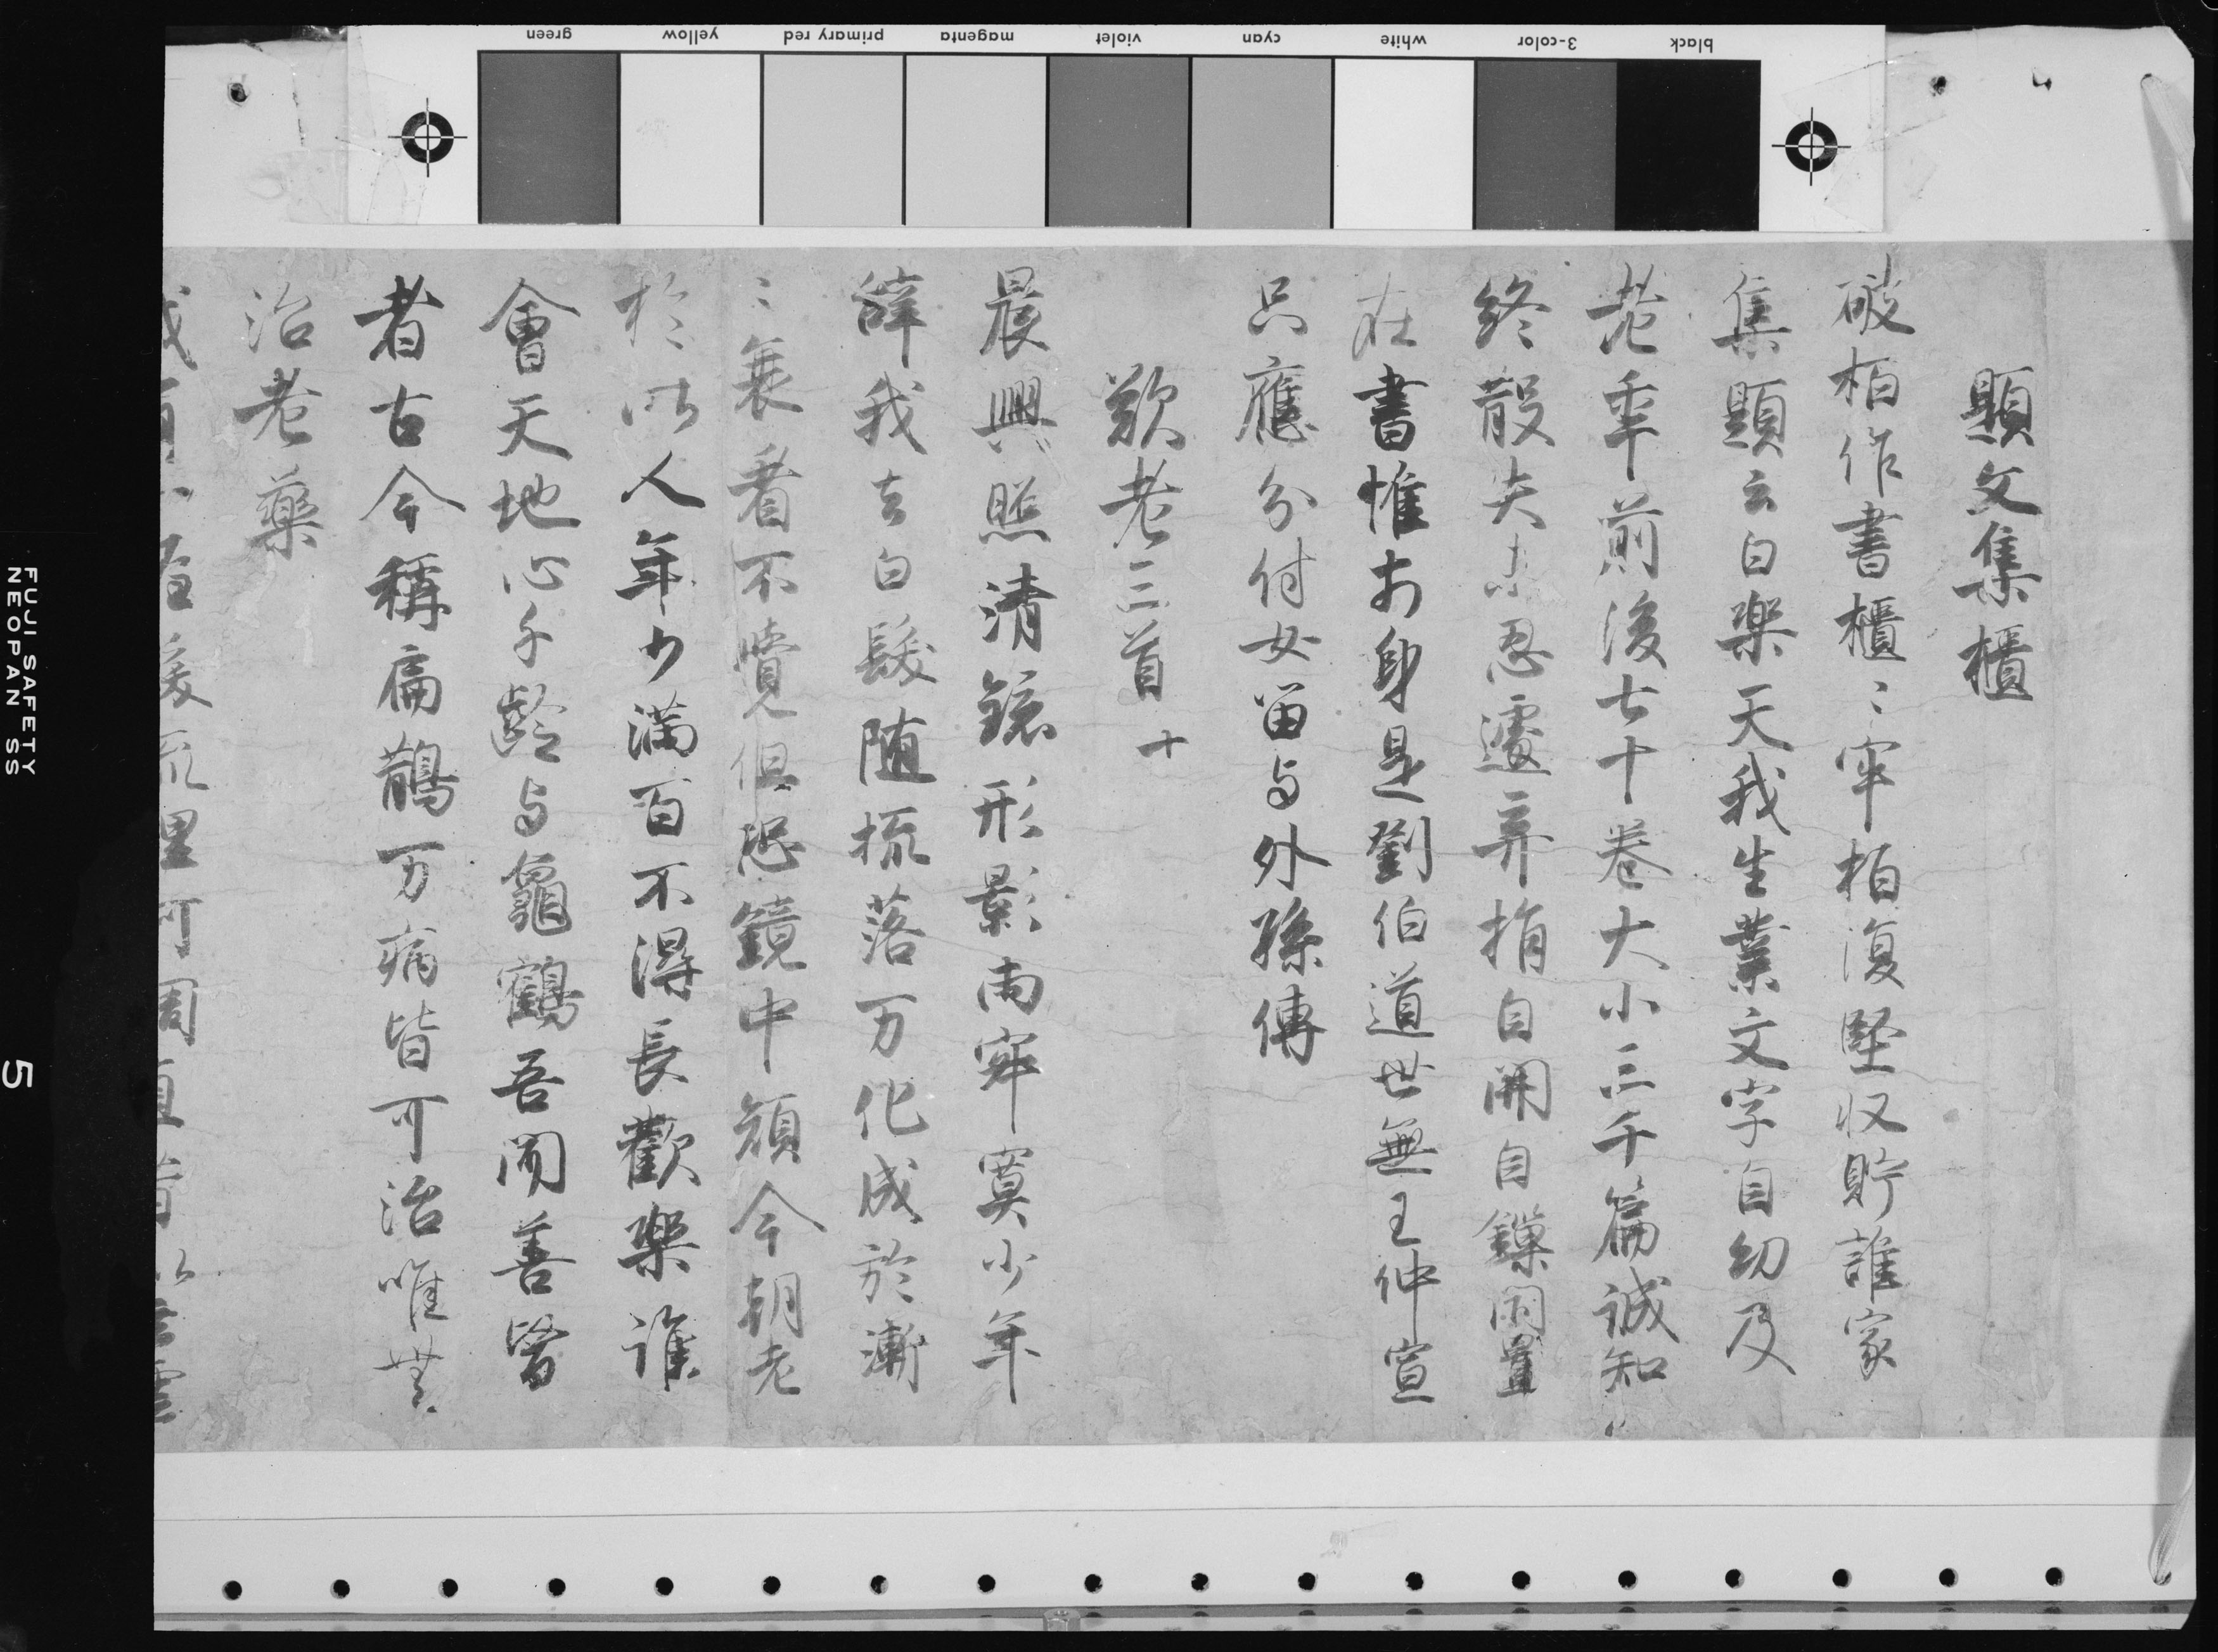 顕文集櫃
破栢作書櫃〻牢栢復堅収貯誰家
集顕云白楽天我生業文字自幼及
老年前後七十巻大小三千篇誠知
終散失未忍遽弃捐自開自鏁閇置
在書帷前身是劉伯道世無王仲宣
只應分付女留与外孫傳
歎老三首
晨興照清鏡形影両寂寞少年
辞我去白髪随梳落万化成於漸
〻衰看不覺但恐鏡中顔今朝老
於昨人年少満百不得長歡楽誰
會天地心千齡与龜鶴吾聞善醫
者古今稱扁鵲万病皆可治唯無
治老藥
green
yellow
primary red
magenta
violet
cyan
white
3-color
black
FUJI SAFETY
NEOPAN SS
5